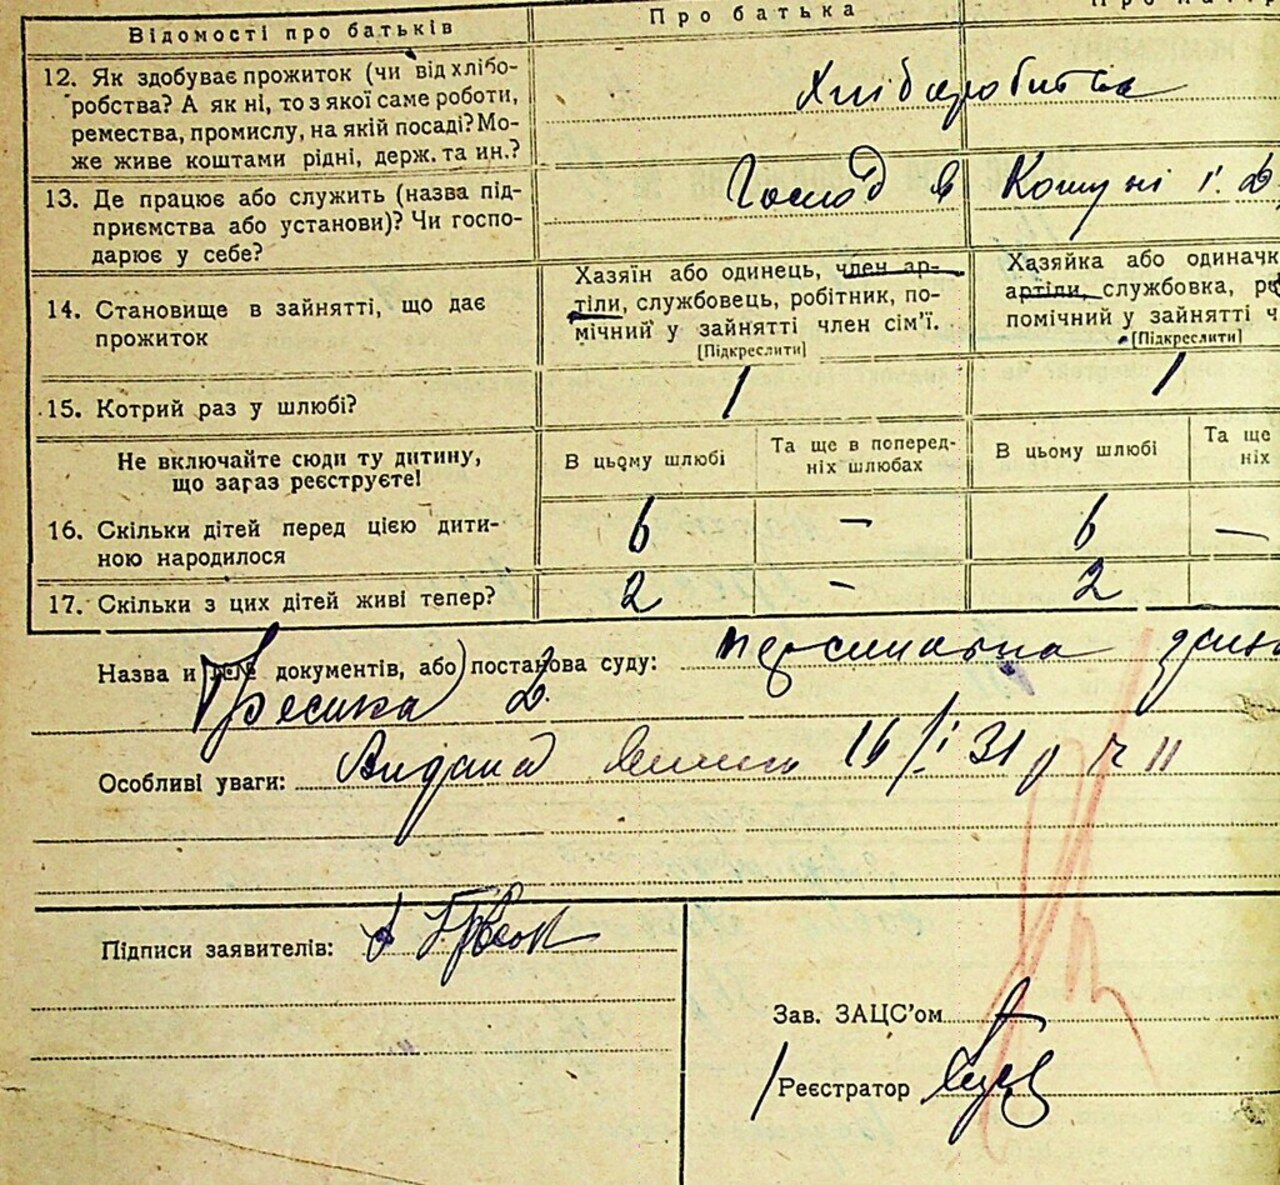 Відомості про батьків
Про батька
12. Як здобуває прожиток (чи від хлібо-
робства? А як ні, то з якої саме роботи,
ремества, промислу, на якій посаді? Мо-
же живе коштами рідні, держ. та ин.?
Хліборобство
13. Де працює або служить (назва під-
приємства або установи)? Чи госпо-
дарює у себе?
Господ в Комуні
14. Становище в зайнятті, що дає
прожиток
Хазяїн або одинець, член ар-
тіли, службовець, робітник, по-
мічний у зайнятті член сім'ї.
[Підкреслити]
Хазяйка або одиначк
артіли, службовка, ро
помічний у зайнятті ч
[Підкреслити]
15. Котрий раз у шлюбі?
1
1
Не включайте сюди ту дитину,
що зараз реєструєте!
В цьому шлюбі
Та ще в поперед-
ніх шлюбах
В цьому шлюбі
Та ще
ніх
16. Скільки дітей перед цією дити-
ною народилося
6 – 6 –
17. Скільки з цих дітей живі тепер?
2 - 2
Назва и №№ документів, або постанова суду:
Особливі уваги: Видана 16/I 31 р ч 11
Підписи заявителів:
Зав. ЗАЦС'ом
Реєстратор